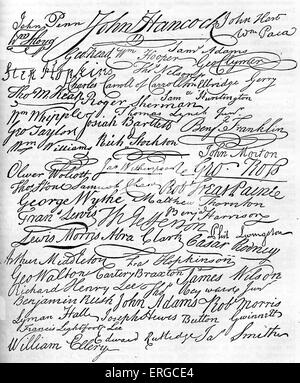 John Penn John Hancock John Hart
Wm Floyd Wm Paca
Geo Read Wm Hooper Saml Adams
Step Hopkins Tho Nelson jr Geo Clymer
Charles Carroll of Carrollton Elbridge Gerry
Tho M:Kean Roger Sherman Saml Huntington
Wm Whipple Thomas Lynch Junr
Geo Taylor Josiah Bartlett Benj Franklin
Wm Williams Richd Stockton
John Morton
Oliver Wolcott Jno Witherspoon Geo Ross
Thos Stone Samuel Chase Robt Treat Paine
George Wythe Matthew Thornton
Frans Lewis Th Jefferson Benj Harrison
Lewis Morris Abra Clark Phil Livingston
Caesar Rodney
Arthur Middleton Fras Hopkinson
Geo Walton Carter Braxton James Wilson
Richard Henry Lee Thos Heyward Junr
Benjamin Rush John Adams Robt Morris
Lyman Hall Joseph Hewes Button Gwinnett
Francis Lightfoot Lee
William Ellery Edward Rutledge Jas Smith
alamy stock photo
ERGCE4